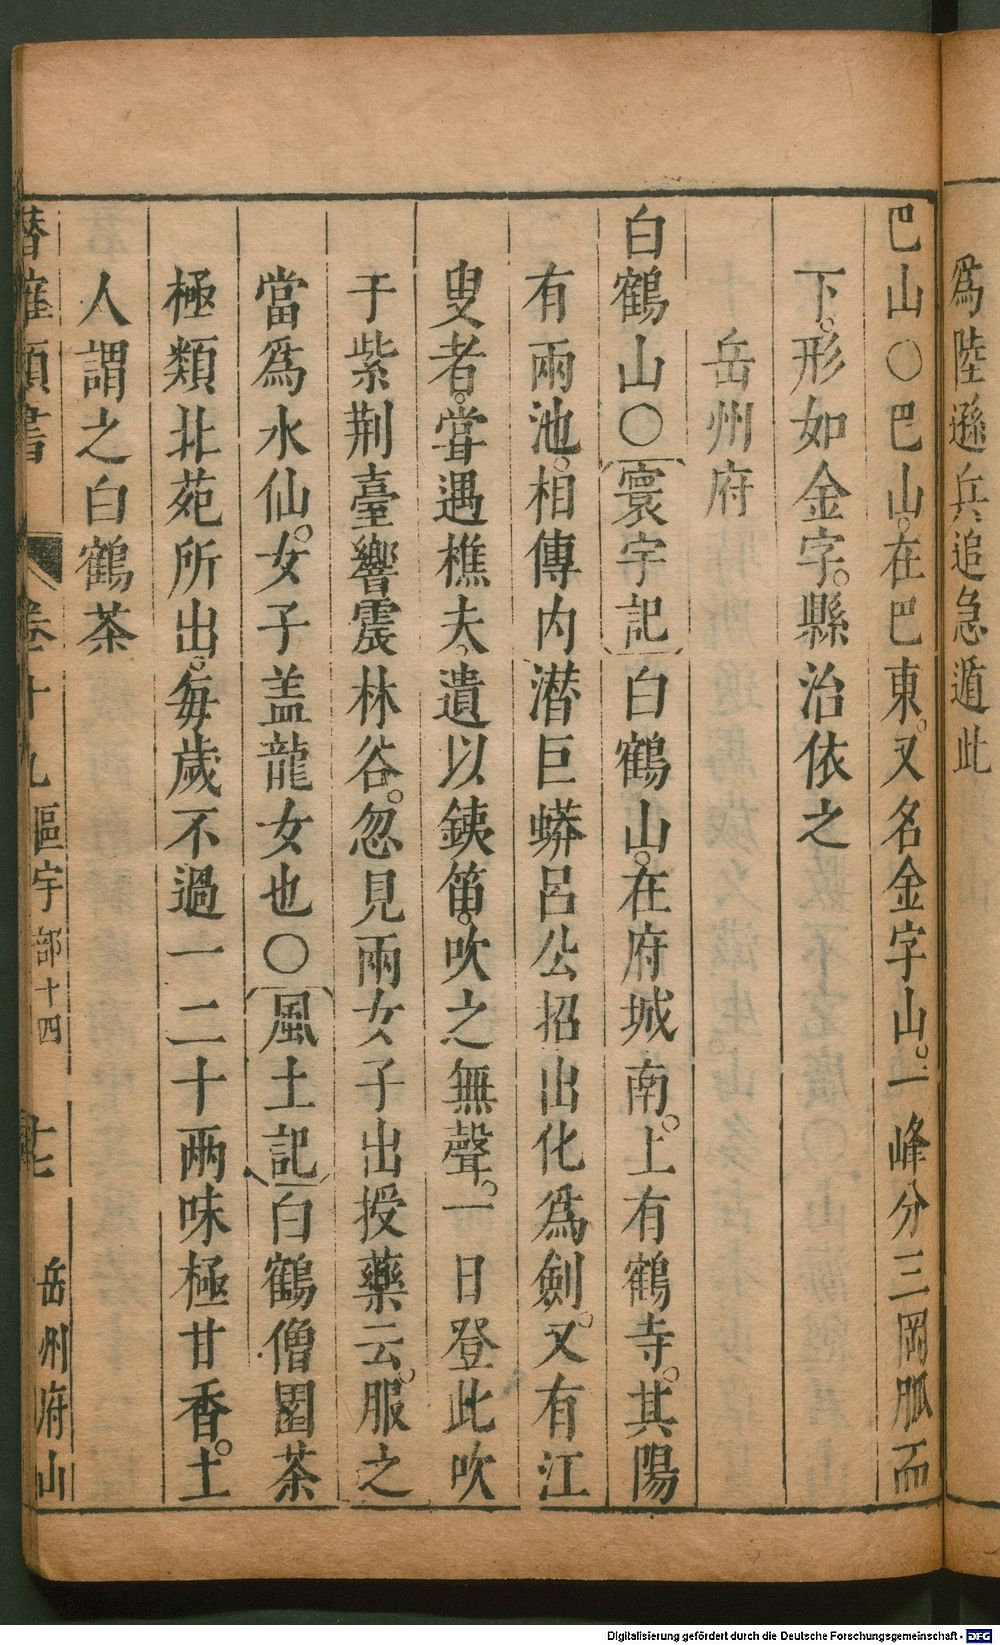 爲陸遜兵追急遁此
巴山〇巴山。在巴東。又名金字山。一峰分三岡脈而
下。形如金字。縣治依之
岳州府
白鶴山〇寰宇記白鶴山。在府城南。上有鶴寺。其陽
有兩池。相傳内潛巨蟒呂公招出化爲劍。又有江
叟者。甞遇樵夫。遺以鐵笛。吹之無聲。一日登此吹
于紫荆臺響震林谷。忽見兩女子出授藥云。服之
當爲水仙。女子盖龍女也〇風土記白鶴僧園茶
極類北苑所出。每歲不過一二十兩味極甘香。土
人謂之白鶴茶
潛確類書 卷十九 區宇部十四 十七 岳州府山
Digitalisierung gefördert durch die Deutsche Forschungsgemeinschaft - DFG